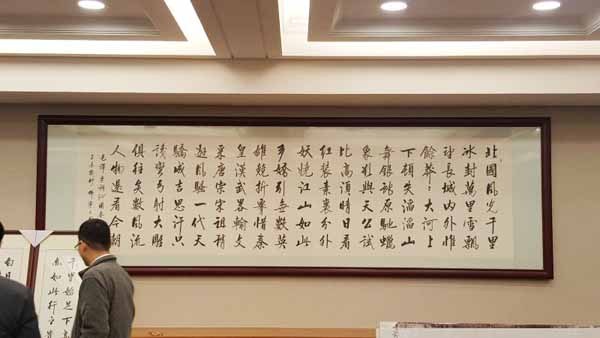 北國風光千里
冰封萬里雪飄
望長城內外惟
餘莽〻大河上
下頓失滔滔山
舞銀蛇原馳蠟
象欲與天公試
比高須晴日看
紅裝素裹分外
妖嬈江山如此
多嬌引無數英
雄競折腰惜秦
皇漢武略輸文
采唐宗宋祖稍
遜風騷一代天
驕成吉思汗只
識彎弓射大雕
俱往矣數風流
人物還看今朝
毛澤東詞沁園春
千里始足下